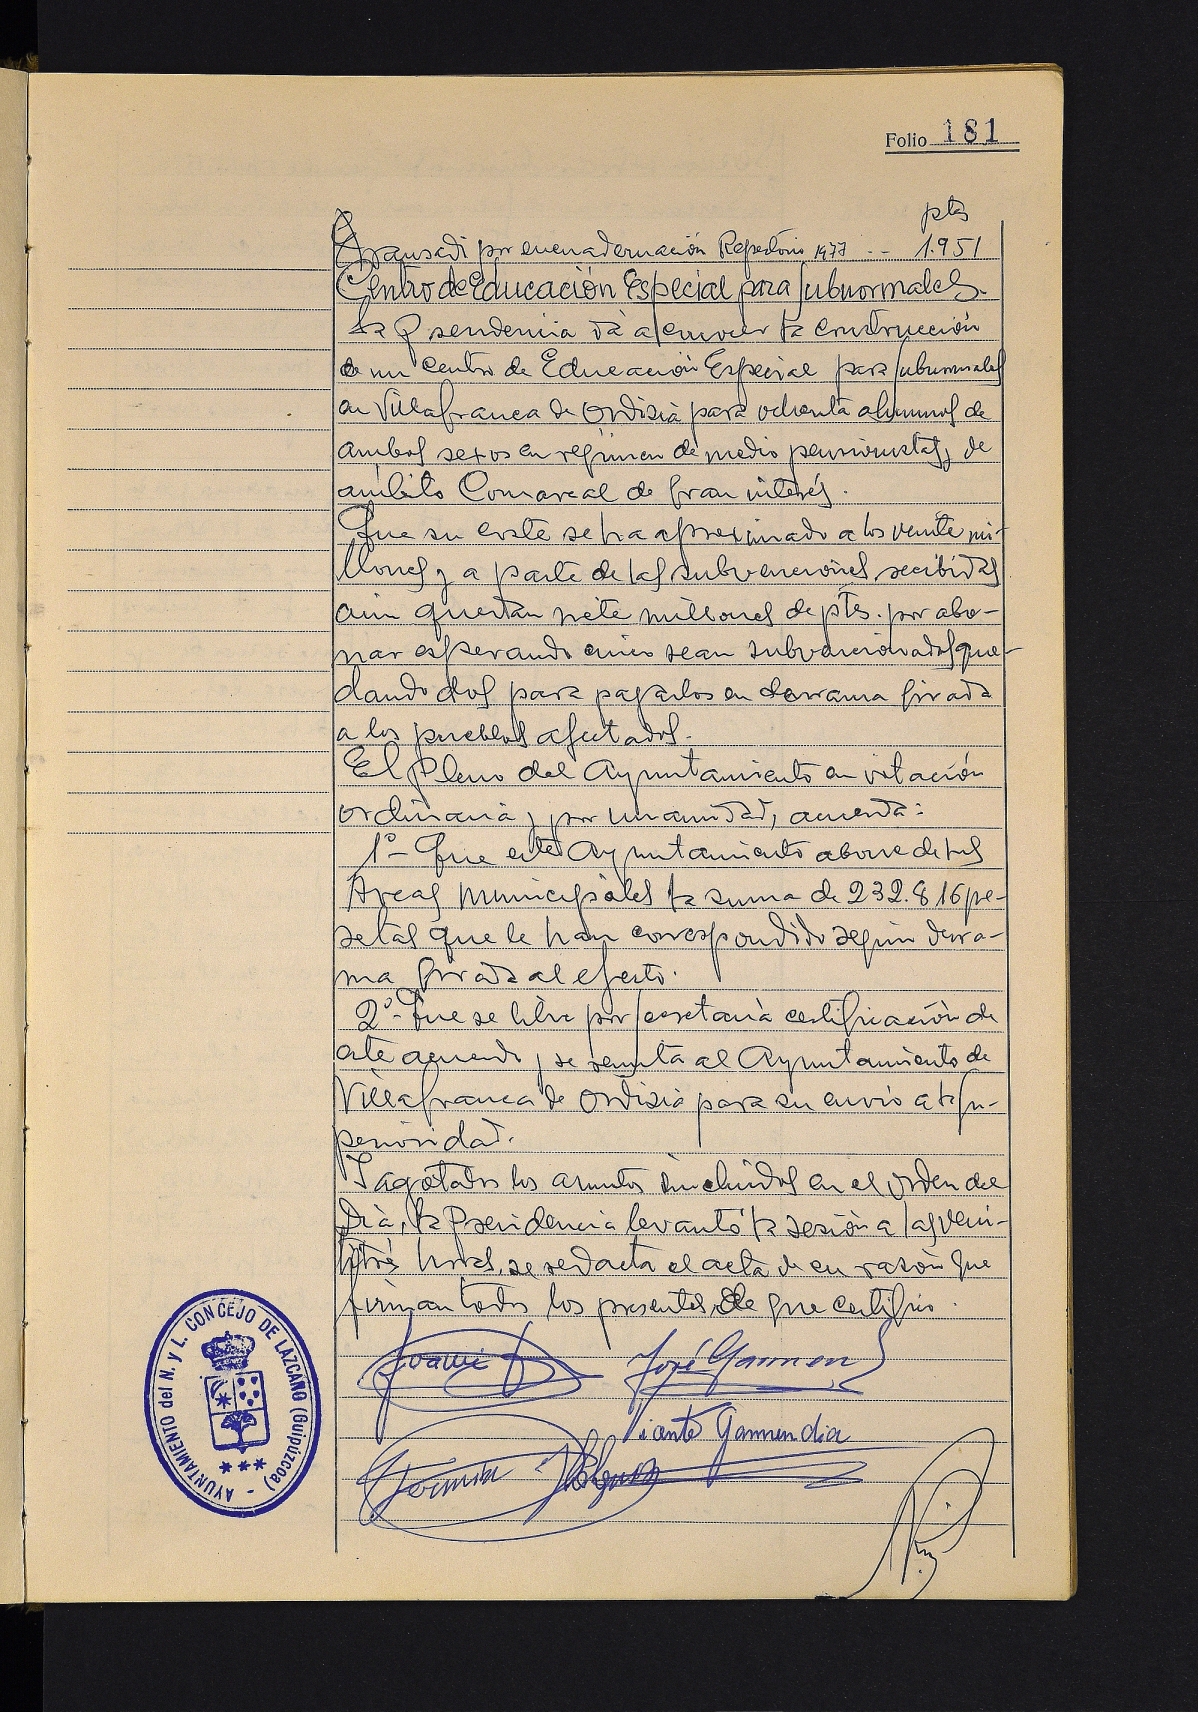 Folio 181
pts
Aranzadi por encuadernación Repertorio 1977 -- 1.951
Centro de Educación Especial para Subnormales.
La Presidencia dá a conocer la construcción
de un Centro de Educación Especial para subnormales
en Villafranca de Ordizia para ochenta alumnos de
ambos sexos en régimen de medio pensionistas, de
ámbito Comarcal de gran interés.
Que su coste se ha aproximado a los veinte mi-
llones y a parte de las subvenciones recibidas
aún quedan siete millones de ptes. por abo-
nar esperando cinco sean subvencionados que-
dando dos para pagarlos en derrama girada
a los pueblos afectados.
El Pleno del Ayuntamiento en votación
ordinaria y por unanimidad, acuerda:
1º- Que este Ayuntamiento abone de sus
Arcas Municipales la suma de 232.816 pe-
setas que le han correspondido según derra-
ma girada al efecto.
2º- Que se libre por Secretaría certificación de
este acuerdo y se remita al Ayuntamiento de
Villafranca de Ordizia para su envío a la Su-
perioridad.
Y agotados los asuntos incluidos en el Orden del
Día, la Presidencia levantó la sesión a las vein-
titrés horas, se redacta el acta de su razón que
firman todos los presentes de que certifico.
José Garmen
Garmendia
AYUNTAMIENTO del N. y L. CONCEJO DE LAZCANO (Guipúzcoa)